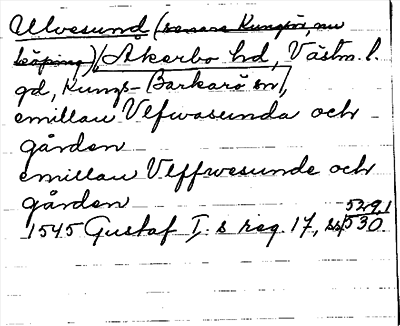 Ulvesund (senare Kungsör, nu
köping) Åkerbo hd, Västm. l.
gd, Kungs-Barkarö sn,
emillan Vlfwasunda och
gården
emillan Vlffwesunde och
gården
1545 Gustaf I:s reg. 17, ss. 529, 530.